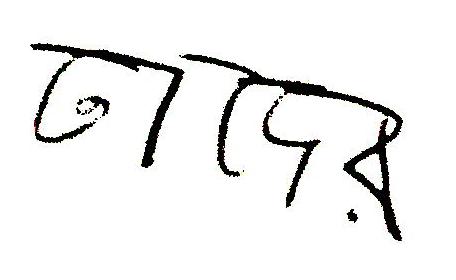 তাদের